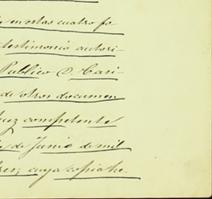 en estas cuatro fo
testimonio autori
Publico D. Cari-
de otros documen
Juez competente
de Junio de mil
tres, cuya copia he